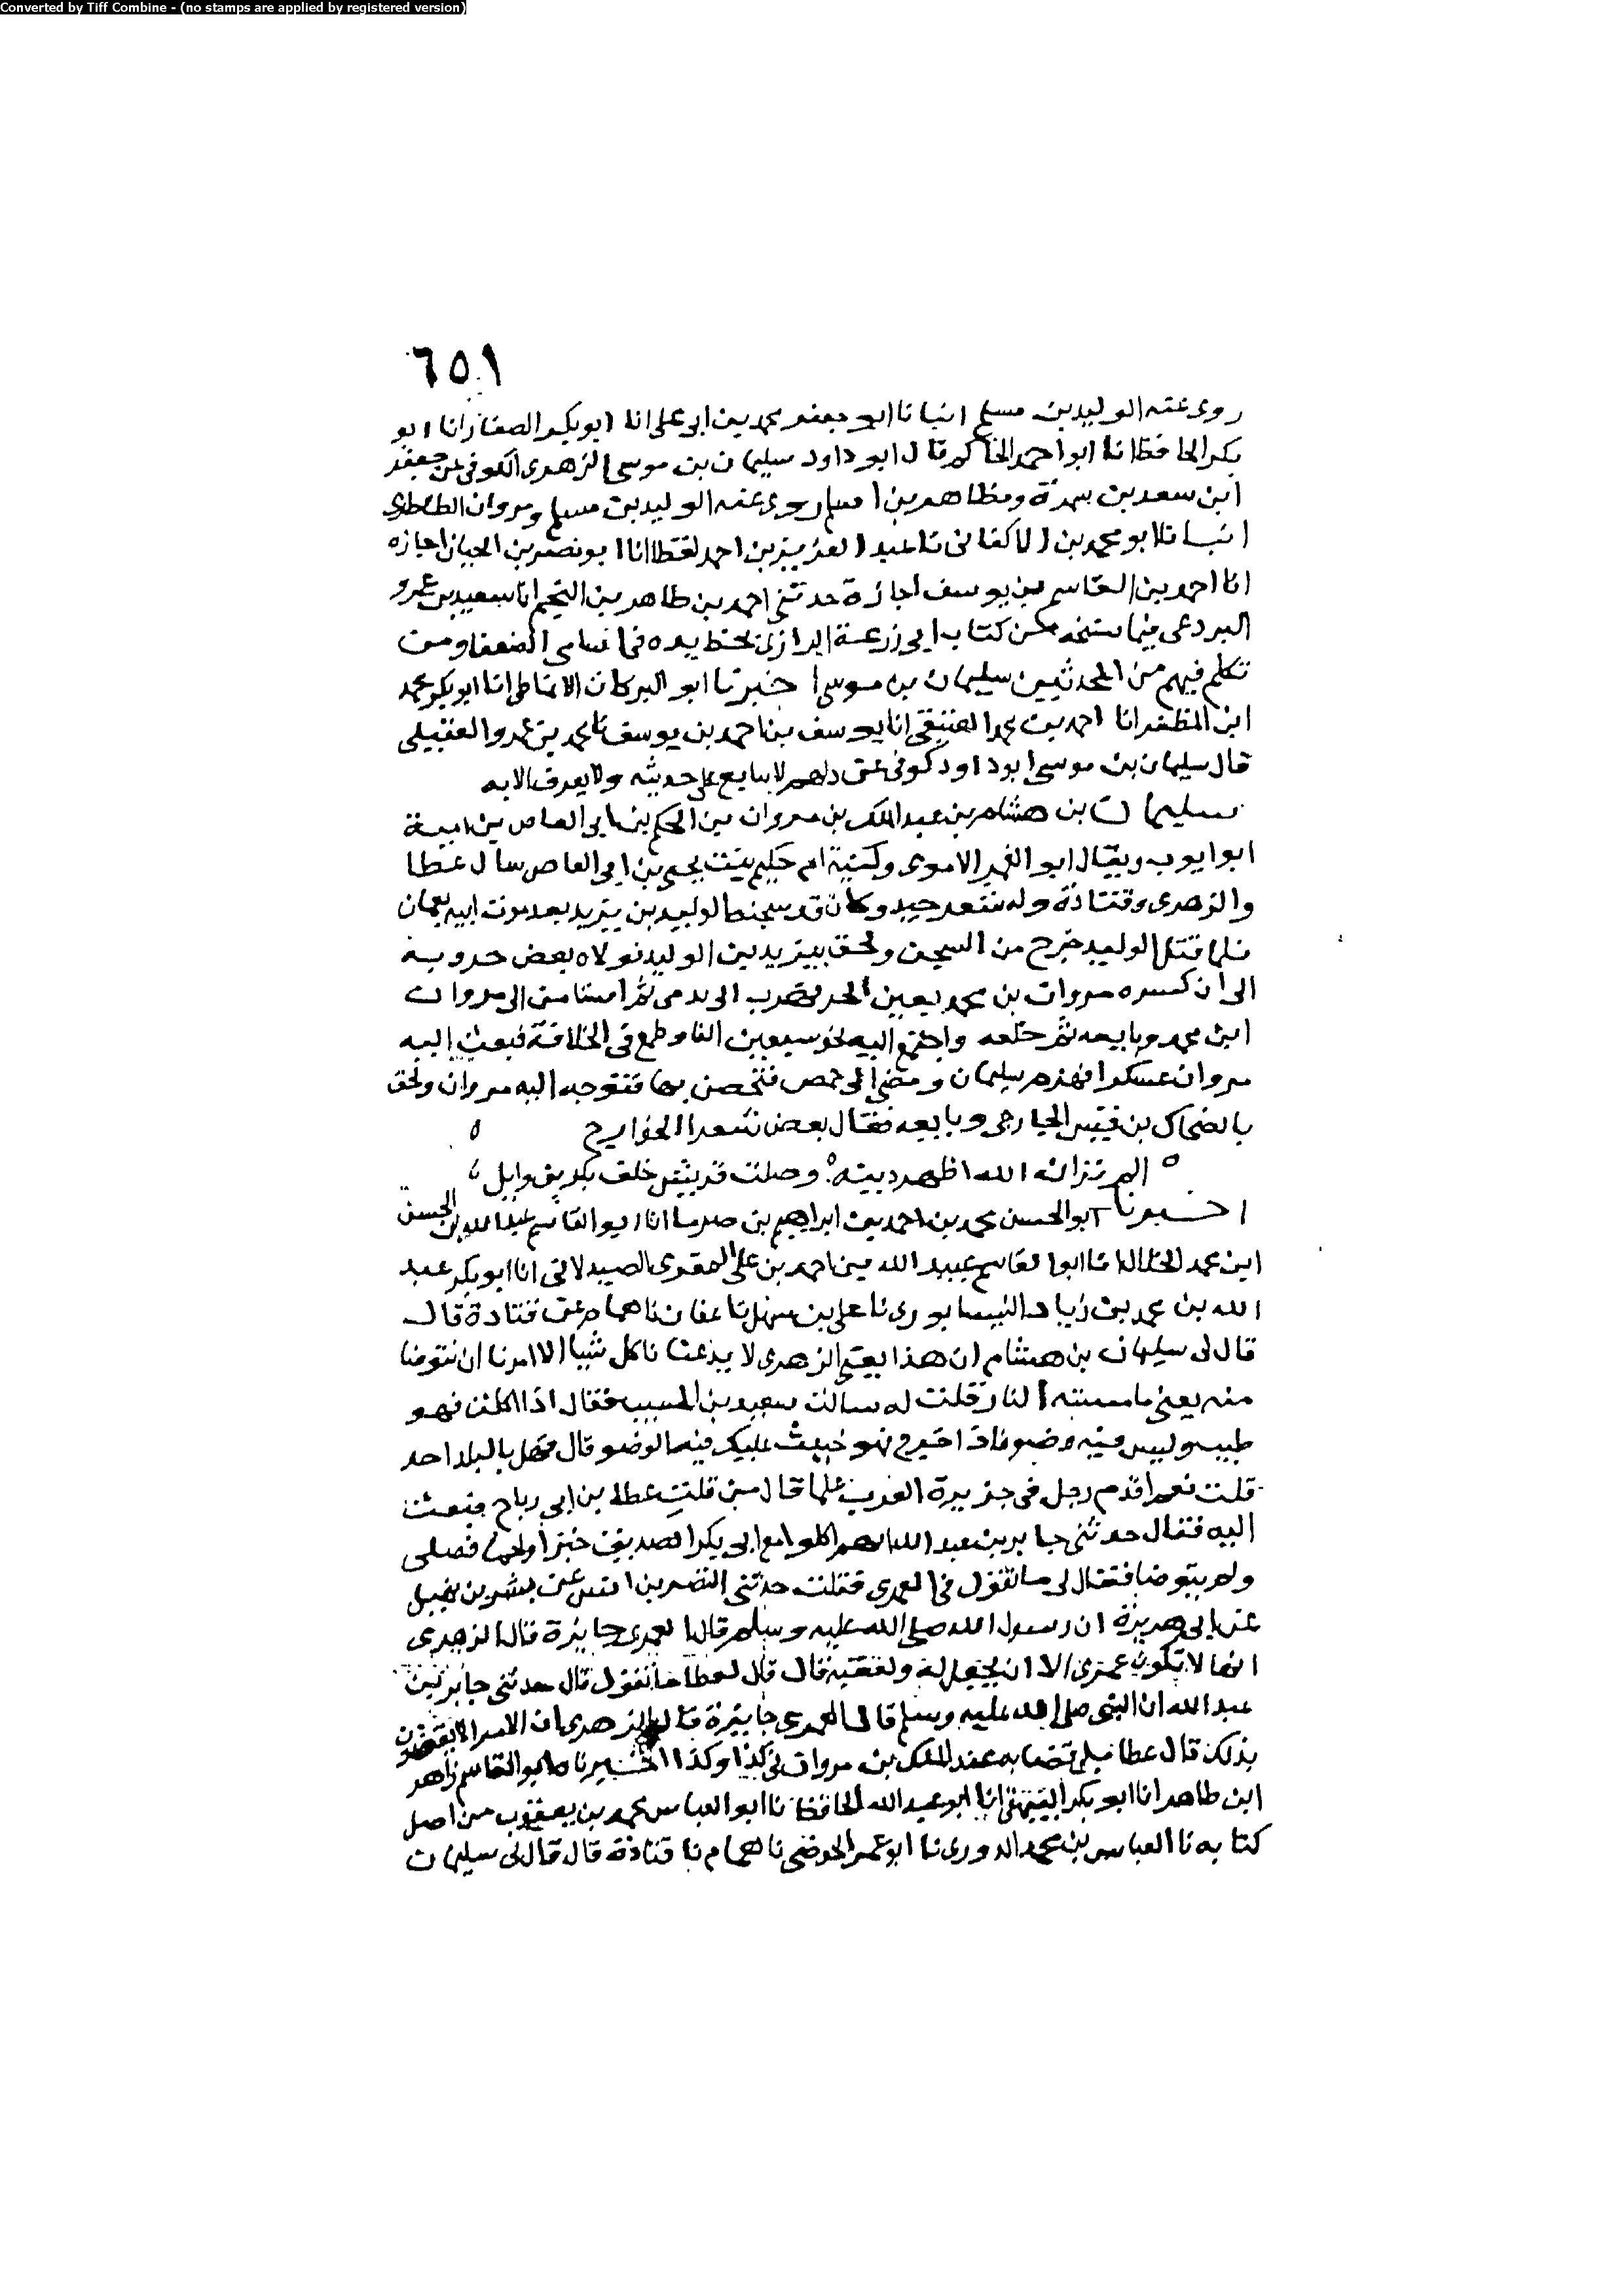 Converted by Tiff Combine - (no stamps are applied by registered version)
٦٥١
روى عنه الوليد بن مسلم انبانا ابو جعفر محمد بن ابي على انا ابو بكر الصفار انا ابو
بكر الحافظ انا ابو احمد الحاكم قال ابو داود سليمان بن موسى الزهرى الكوفى عن جعفر
ابن سعد بن سمرة ومظاهر بن اسلم روى عنه الوليد بن مسلم ومروان الطاطرى
انبانا ابو محمد بن الاكفانى نا عبد العزيز بن احمد لفظا انا ابو نصر بن الجبان اجازه
انا احمد بن القاسم بن يوسف اجازة حدثنى احمد بن طاهر بن النجم انا سعيد بن عمرو
البردعى فيما نسخه من كتاب ابى زرعة الرازى بخط يده فى اسامى الضعفا ومن
تكلم فيهم من المحدثين سليمان بن موسى اخبرنا ابو البركات الانماطى انا ابو بكر محمد
ابن المظفر انا احمد بن محمد العتيقى انا يوسف بن احمد بن يوسف نا محمد بن عمرو العقيلى
قال سليمان بن موسى ابو داود كوفى عن دلهم لا يتابع على حديثه ولا يعرف الا به
سليمان بن هشام بن عبد الملك بن مروان بن الحكم بن ابى العاص بن امية
ابو ايوب ويقال ابو الغمر الاموى وكنية ام حكيم بنت يحيى بن ابى العاص سال عطا
والزهرى وقتادة وله شعر جيد وكان قد سجنه الوليد بن يزيد بعد موت ابيه بعمان
فلما قتل الوليد خرج من السجن ولحق بيزيد بن الوليد فولاه بعض حروبه
الى ان كسره مروان بن محمد بعين الجر فهرب الى تدمر ثم استامن الى مروان
ابن محمد وبايعه ثم خلعه واجتمع اليه نحو سبعين الفا وطمع فى الخلافة فبعث اليه
مروان عسكرا فهزم سليمان ومضى الى حمص فتحصن بها فتوجه اليه مروان ولحق
بالضحاك بن قيس الخارجى وبايعه فقال بعض شعرا الخوارج ٥
٥ الم تر ان الله اظهر دينه ٥ وصلت قريش خلف بكر بن وايل
اخبرنا ابو الحسن محمد بن احمد بن ابراهيم بن صرما انا ابو القاسم عبد الله بن الحسن
ابن محمد الخلال انا ابو القاسم عبيد الله بن احمد بن على المقرى الصيدلانى انا ابو بكر عبد
الله بن محمد بن زياد النيسابورى نا على بن سهل نا عفان نا همام عن قتادة قال
قال لى سليمان بن هشام ان هذا يعنى الزهرى لا يدعنا ناكل شيا الا امرنا ان نتوضا
منه يعنى ما مسته النار قلت له سالت سعيد بن المسيب فقال اذا اكلت فهو
طيب وليس فيه وضو فاذا خرج فهو خبيث عليك فيه الوضو قال فهل بالبلد احد
قلت نعم اقدم رجل فى جزيرة العرب علما قال من قلت عطا بن ابى رباح فبعث
اليه فقال حدثنى جابر بن عبد الله انهم اكلوا مع ابى بكر الصديق خبزا ولحما فصلى
ولم يتوضا فقال لى ما تقول فى العمرى فقلت حدثنى النضر بن انس عن بشير بن نهيك
عن ابى هريرة ان رسول الله صلى الله عليه وسلم قال العمرى جايزة قال الزهرى
انها لا تكون عمرى الا ان يجعل له ولعقبه قال قال لعطا ما تقول قال حدثنى جابر بن
عبد الله ان النبى صلى الله عليه وسلم قال العمرى جايزة قال الزهرى ان الامرا لا يقضون
بذلك قال عطا بلى قضا به عبد الملك بن مروان فى كذا وكذا اخبرنا ابو القاسم زاهر
ابن طاهر انا ابو بكر البيهقى انا ابو عبد الله الحافظ نا ابو العباس محمد بن يعقوب من اصل
كتابه نا العباس بن محمد الدورى نا ابو عمر الحوضى نا همام نا قتادة قال قال لى سليمان